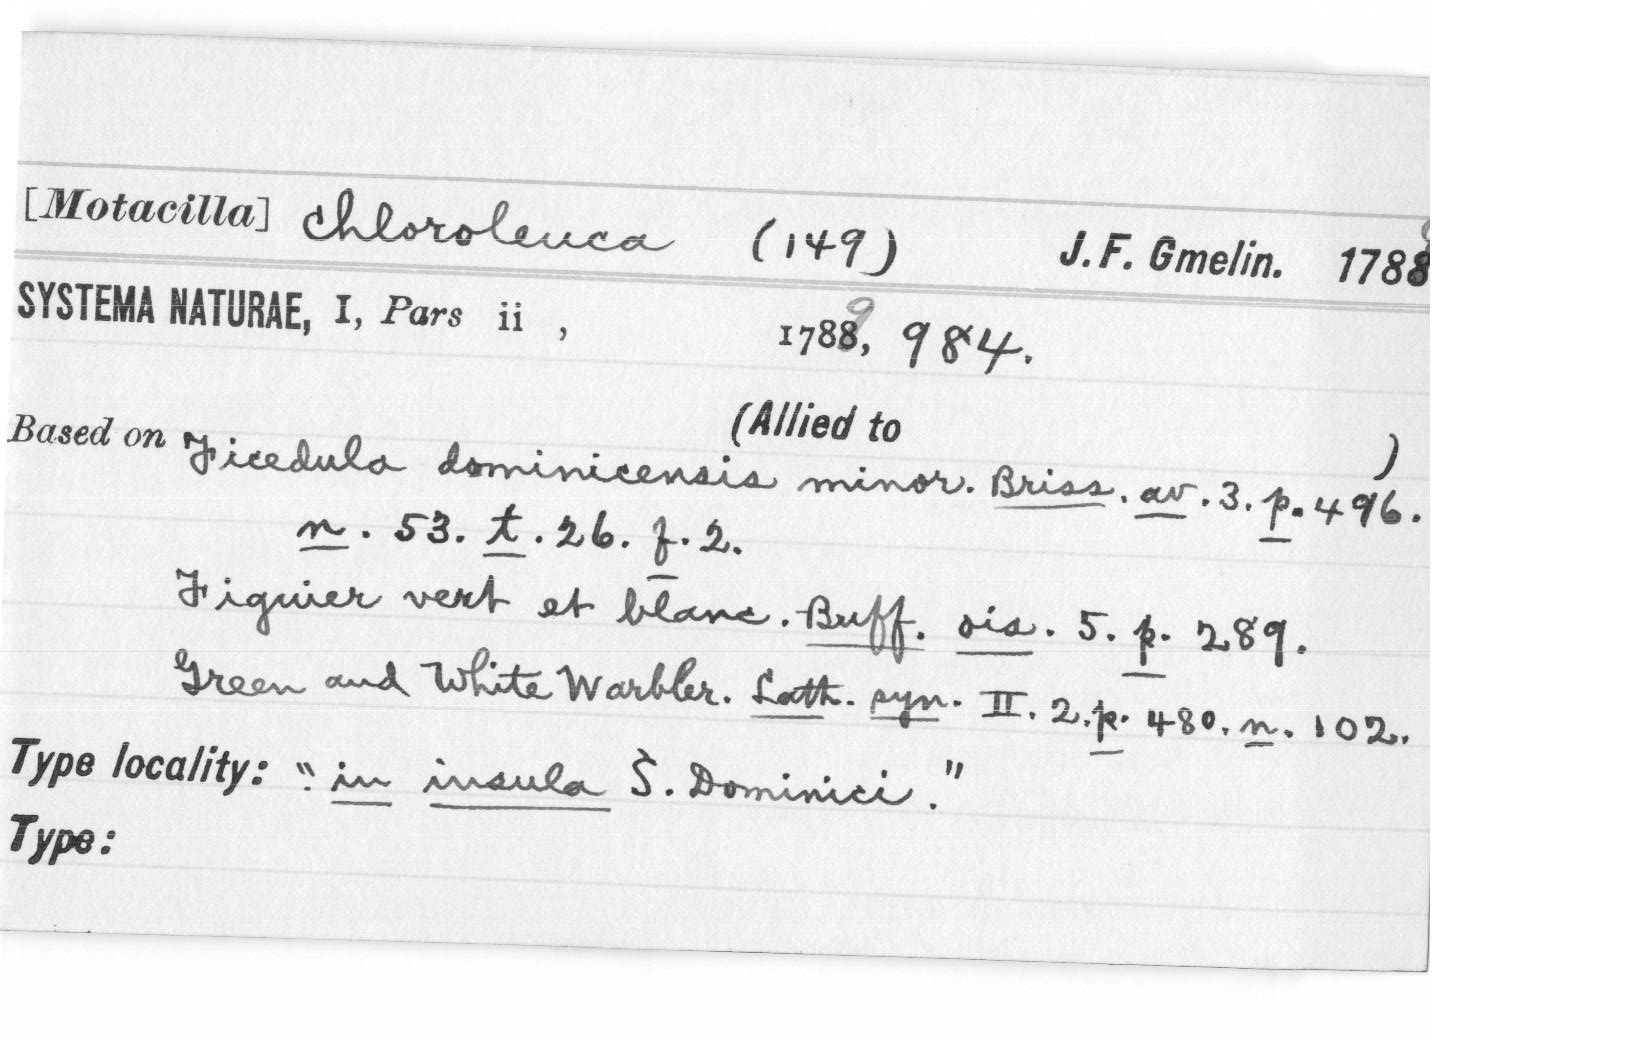 [Motacilla] chloroleuca (149) J. F. Gmelin. 1788
SYSTEMA NATURAE, I, Pars ii , 17889, 984.
(Allied to )
Based on Ficedula dominicensis minor. Briss. av. 3. p. 496.
n. 53. t. 26. f. 2.
Figuier vert et blanc. Buff. ois. 5. p. 289.
Green and White Warbler. Lath. syn. II. 2. p. 480. n. 102.
Type locality: "in insula S. Dominici."
Type: